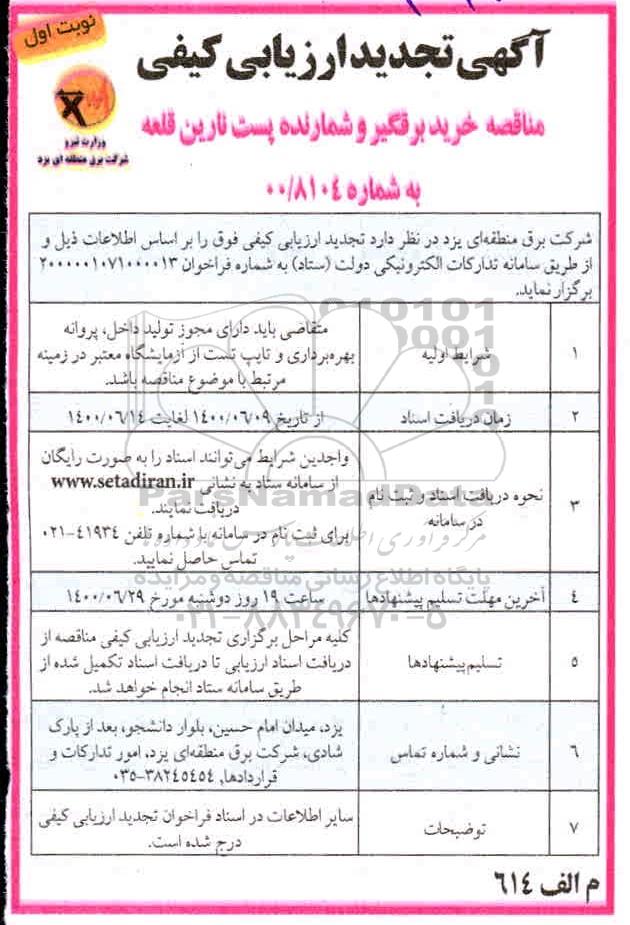 نوبت اول
آگهی تجدید ارزیابی کیفی
مناقصه خرید برقگیر و شمارنده پست نارین قلعه
به شماره ۰۰/۸۱۰۴
وزارت نیرو
شرکت برق منطقه ای یزد
شرکت برق منطقه‌ای یزد در نظر دارد تجدید ارزیابی کیفی فوق را بر اساس اطلاعات ذیل و
از طریق سامانه تدارکات الکترونیکی دولت (ستاد) به شماره فراخوان ۲۰۰۰۰۰۱۰۷۱۰۰۰۰۱۳
برگزار نماید.
۱
شرایط اولیه
متقاضی باید دارای مجوز تولید داخل، پروانه
بهره‌برداری و تایپ تست از آزمایشگاه معتبر در زمینه
مرتبط با موضوع مناقصه باشد.
۲
زمان دریافت اسناد
از تاریخ ۱۴۰۰/۰۶/۰۹ لغایت ۱۴۰۰/۰۶/۱۴
۳
نحوه دریافت اسناد و ثبت نام
در سامانه
واجدین شرایط می‌توانند اسناد را به صورت رایگان
از سامانه ستاد به نشانی www.setadiran.ir
دریافت نمایند.
برای ثبت نام در سامانه با شماره تلفن ۴۱۹۳۴-۰۲۱
تماس حاصل نمایید.
۴
آخرین مهلت تسلیم پیشنهادها
ساعت ۱۹ روز دوشنبه مورخ ۱۴۰۰/۰۶/۲۹
۵
تسلیم پیشنهادها
کلیه مراحل برگزاری تجدید ارزیابی کیفی مناقصه از
دریافت اسناد ارزیابی تا دریافت اسناد تکمیل شده از
طریق سامانه ستاد انجام خواهد شد.
۶
نشانی و شماره تماس
یزد، میدان امام حسین، بلوار دانشجو، بعد از پارک
شادی، شرکت برق منطقه‌ای یزد، امور تدارکات و
قراردادها، ۳۸۲۴۵۴۵۴-۰۳۵
۷
توضیحات
سایر اطلاعات در اسناد فراخوان تجدید ارزیابی کیفی
درج شده است.
م الف ۶۱۴
ParsNamadData
پایگاه اطلاع رسانی مناقصه و مزایده
۰۲۱-۸۸۳۴۹۶۷۰-۵